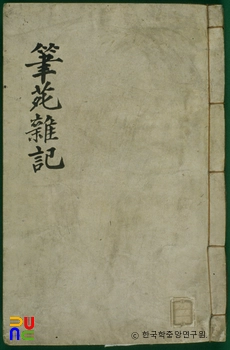 筆苑雜記
© 한국학중앙연구원